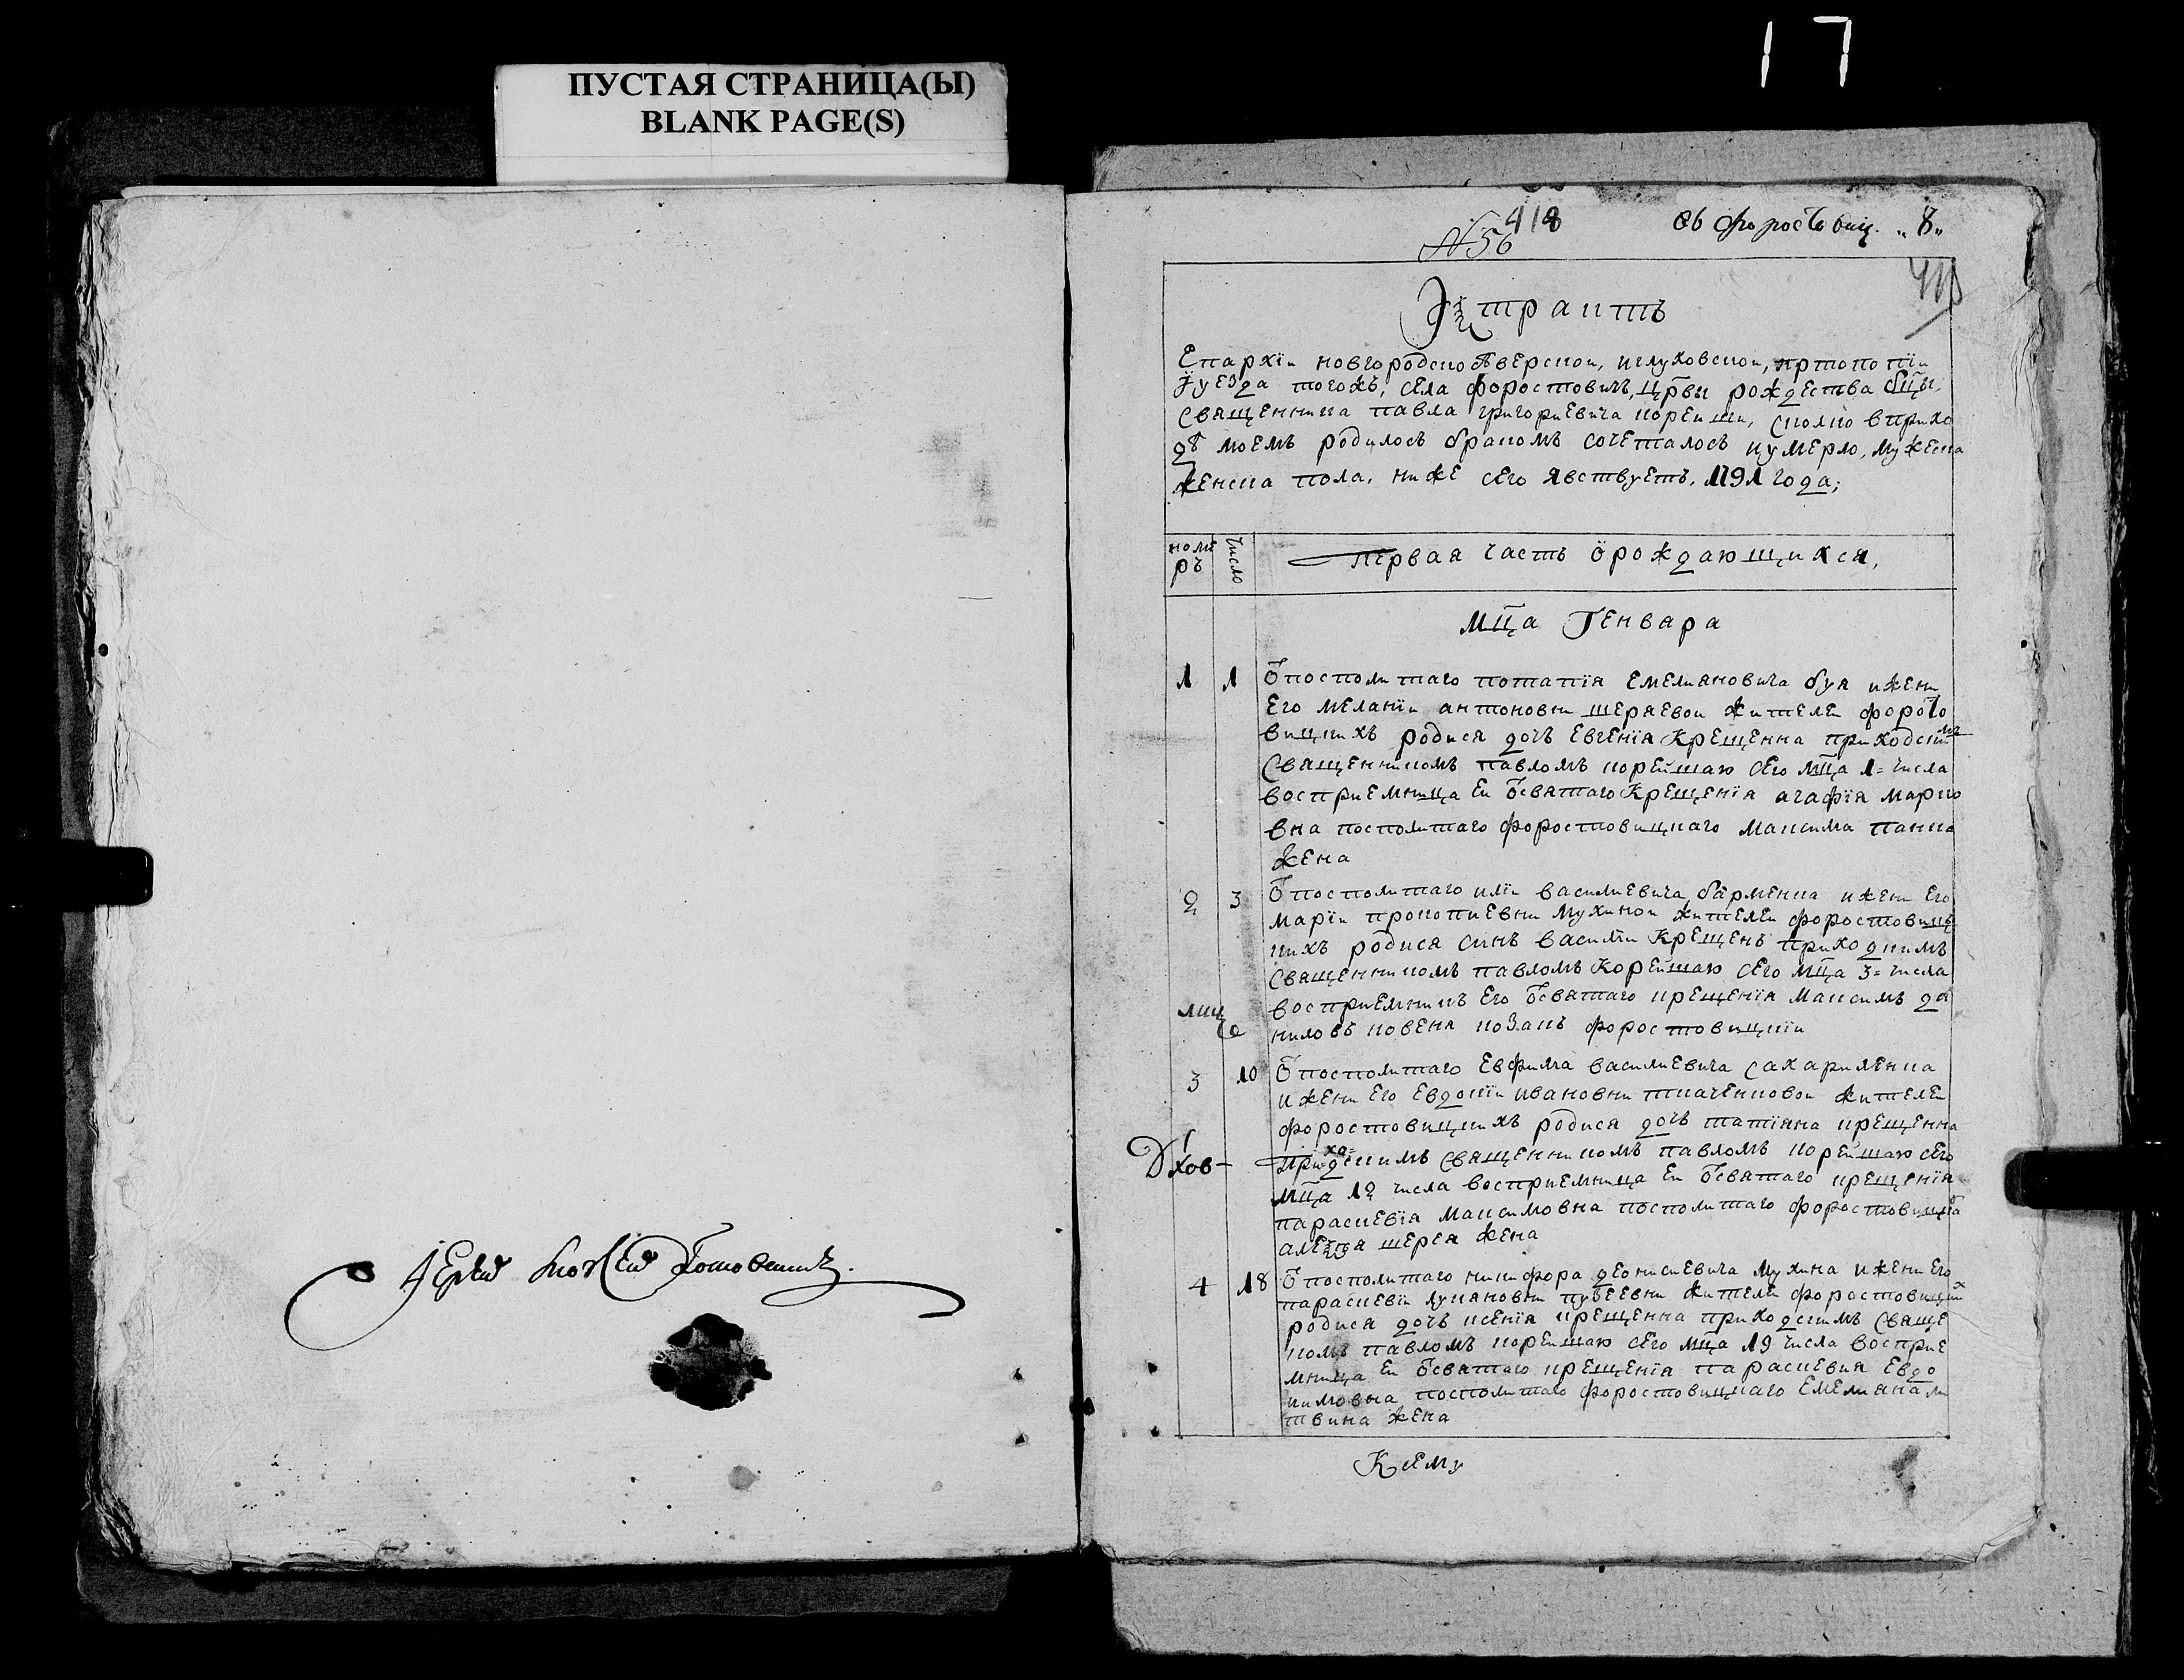 17
ПУСТАЯ СТРАНИЦА(Ы)
BLANK PAGE(S)
Іерей
418
№ 56
8
Эѯтрактъ
Епархїи новгородскосѣверской, иглуховской, пртопопїи
иуезда тогожъ, села форостовичъ, црвы рождества бцы,
священника павла григориевича корейши, сколко вприхо
дѣ моемъ родилось бракомъ сочеталось иумерло, мужеска
женска пола, ниже сего явствуетъ, 1791 года;
номе
ръ
число
первая часть ѿрождающихся,
Мца Генвара
1 1 ѿпосполитаго потапїя емелияновича буя ижени
его меланїи антоновни шеряевои жителей форосто
вицкихъ родися дочъ евгенїя крещенна приходскимъ
священникомъ павломъ корейшаю сего мца 1= числа
восприемница еи ѿсвятаго крещенїя агафїя марко
вна посполитаго форостовицкаго максима панка
жена
2 3 ѿпосполитаго илїи василиевича барменка ижени его
марїи прокопиевни мухинои жителеи форостовиц
кихъ родися синъ василїи крещенъ приходкимъ
священникомъ павломъ корейшаю сего мца 3= числа
восприемникъ его ѿсвятаго крещенїя максимъ да
ниловъ ковеня козакъ форостовицкїи
3 10 ѿпосполитаго евфима василиевича сахариленка
ижени его евдокїи ивановни ткаченковои жителеи
форостовицкихъ родися дочъ татїяна крещенна
приходскимъ священникомъ павломъ корейшаю сего
мца 12 числа восприемница еи ѿсвятаго крещенїя
параскевїя максимовна посполитаго форостовицкаго
алеѯѣя шерея жена
4 18 ѿпосполитаго никифора деонисиевича мухина ижени его
параскевїи лукяновни пузеевни жителей форостовицкихъ
родися дочъ ксенїя крещенна приходскимъ священ
комъ павломъ корейшаю сего мца 19 числа восприе
мница еи ѿсвятаго крещенїя параскевия евдо
кимовна посполитаго форостовицкаго емелияна ли
твина жена
Ксему